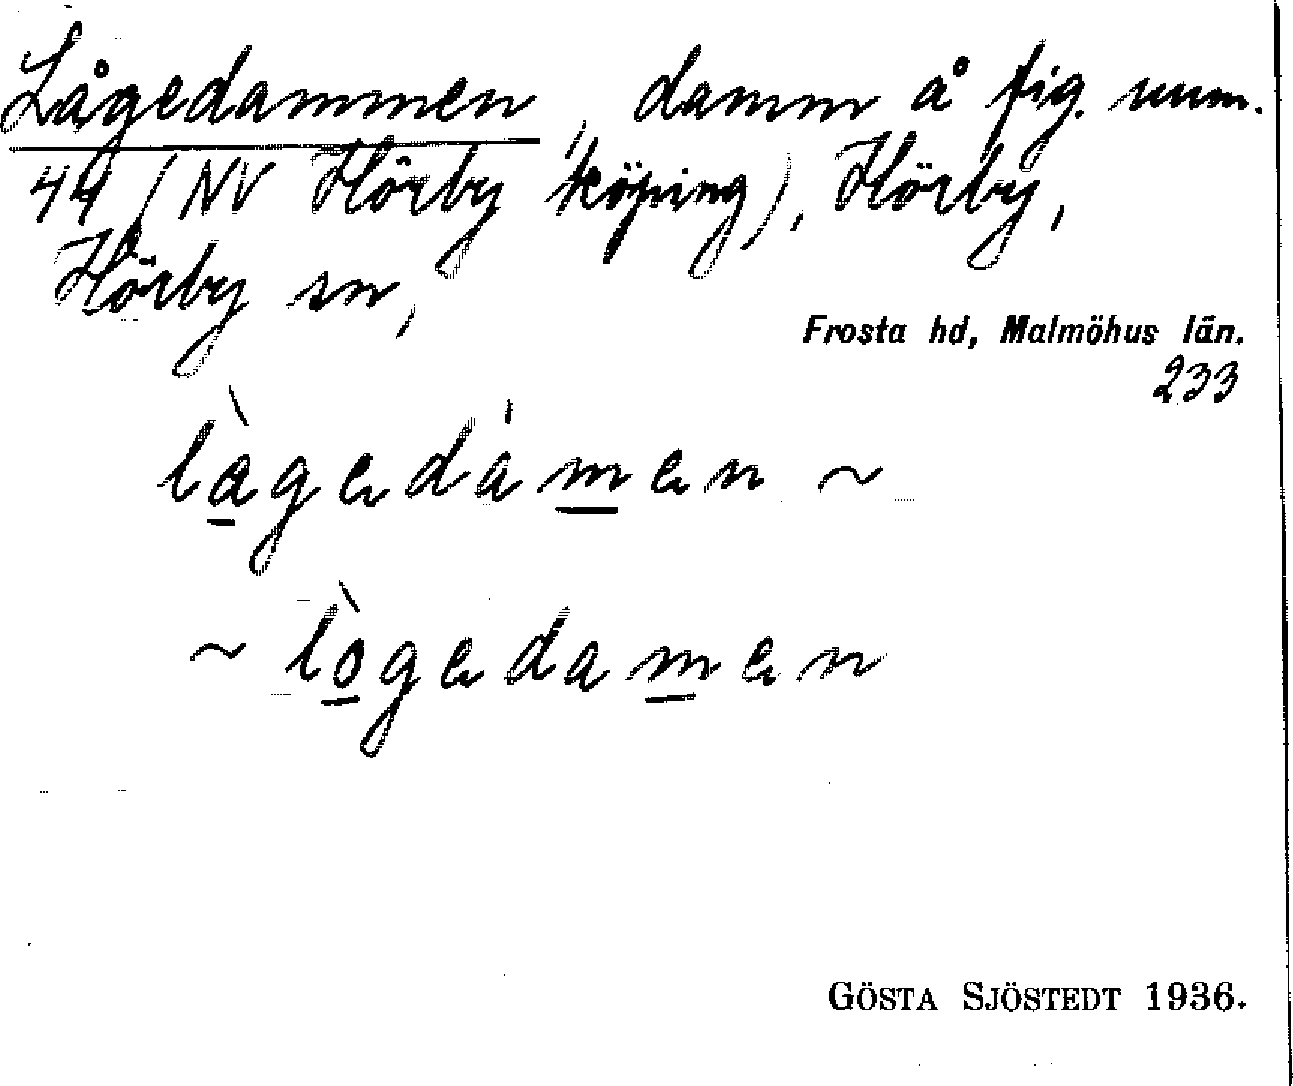 Lågedammen, damm å fig. num.
44 (NV Hörby köping), Hörby,
Hörby sn,
Frosta hd, Malmöhus län.
233
l̀a̱gedám̱en ~
~ lò̱gedam̱en
GÖSTA SJÖSTEDT 1936.